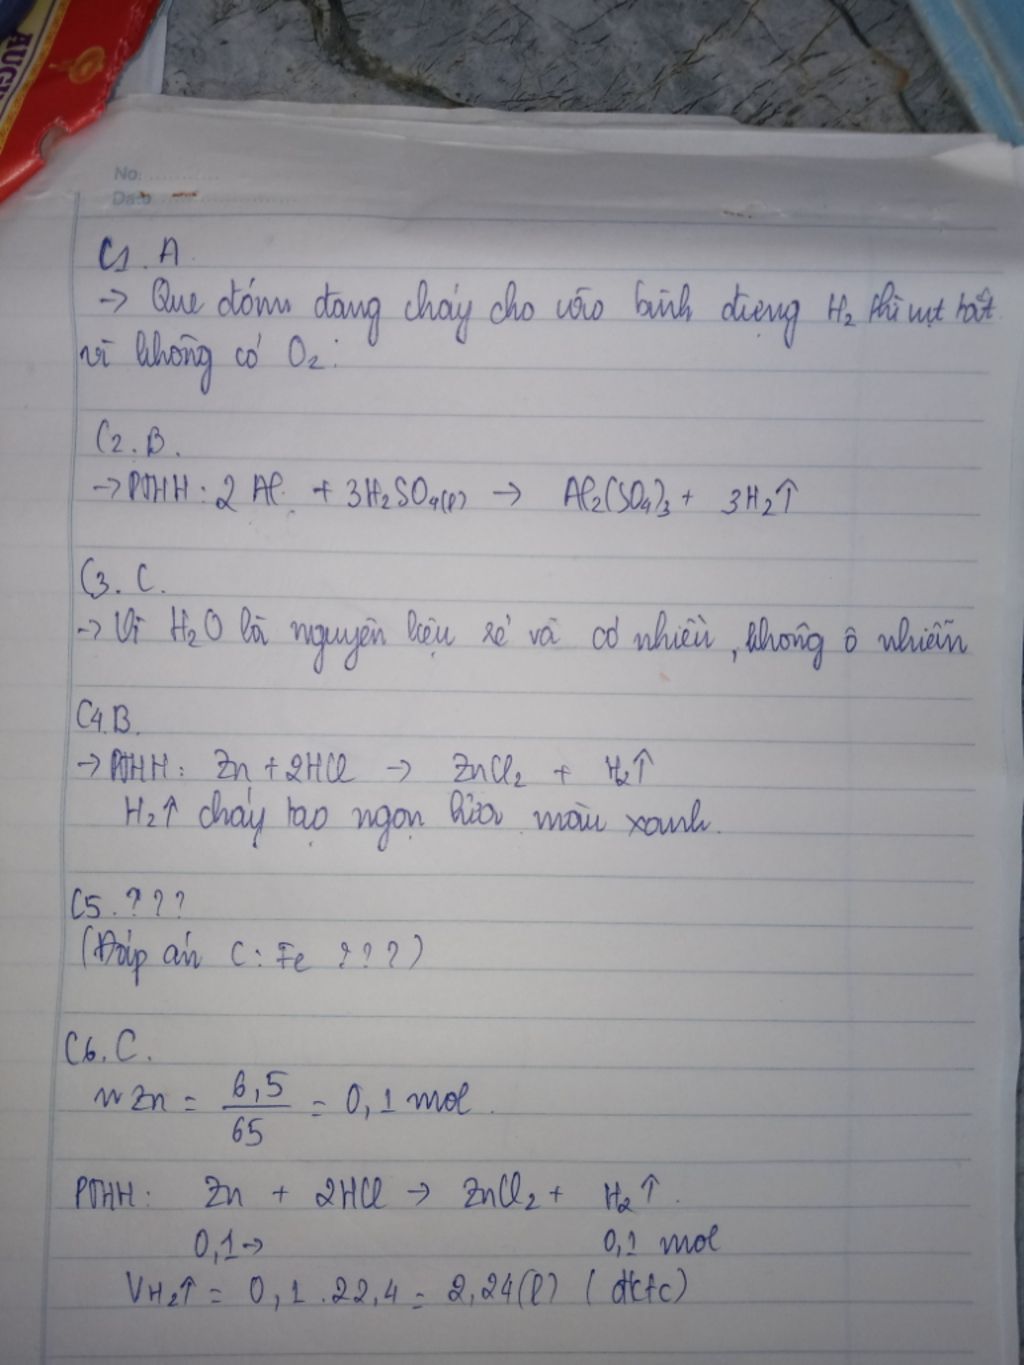 AUG
No:
Date
C1. A
-> Que đóm đang cháy cho vào bình đựng H₂ thì vụt tắt
vì không có O₂.
C2. B.
-> PTHH: 2 Al + 3H₂SO₄(l) -> Al₂(SO₄)₃ + 3H₂↑
C3. C.
-> Vì H₂O là nguyên liệu rẻ và có nhiều, không ô nhiễm
C4. B.
-> PTHH: Zn + 2HCl -> ZnCl₂ + H₂↑
H₂↑ cháy tạo ngọn lửa màu xanh.
C5. ???
(Đáp án C: Fe ???)
C6. C.
nZn = 6,5/65 = 0,1 mol.
PTHH: Zn + 2HCl -> ZnCl₂ + H₂↑.
0,1-> 0,1 mol
VH₂↑ = 0,1.22,4 = 2,24(l) (đktc)